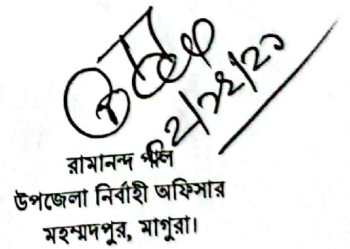 ২/১২/২১
রামানন্দ পাল
উপজেলা নির্বাহী অফিসার
মহম্মদপুর, মাগুরা।